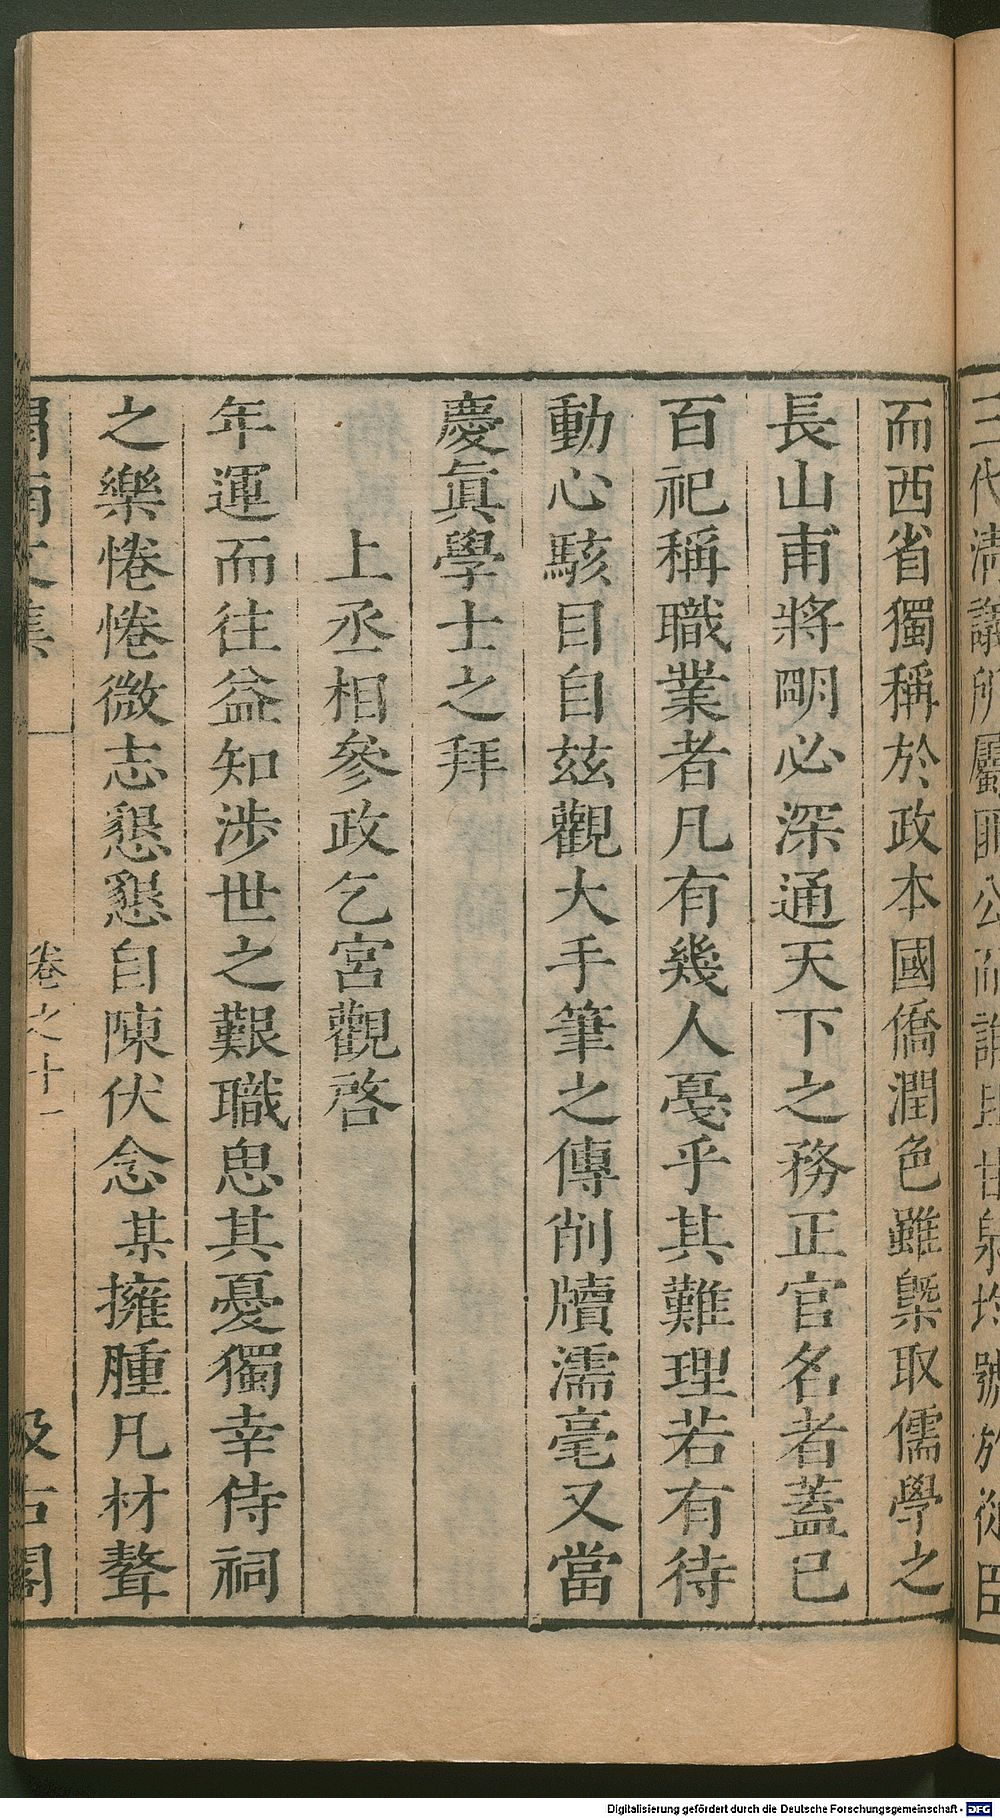 而西省獨稱於政本國僑潤色雖槩取儒學之
長山甫將明必深通天下之務正官名者蓋已
百祀稱職業者凡有幾人戞乎其難理若有待
動心駭目自兹觀大手筆之傳削牘濡毫又當
慶眞學士之拜
上丞相參政乞宮觀啓
年運而往益知涉世之艱職思其憂獨幸侍祠
之樂惓惓微志懇懇自陳伏念某擁腫凡材聱
卷之十一
汲古閣
Digitalisierung gefördert durch die Deutsche Forschungsgemeinschaft - DFG